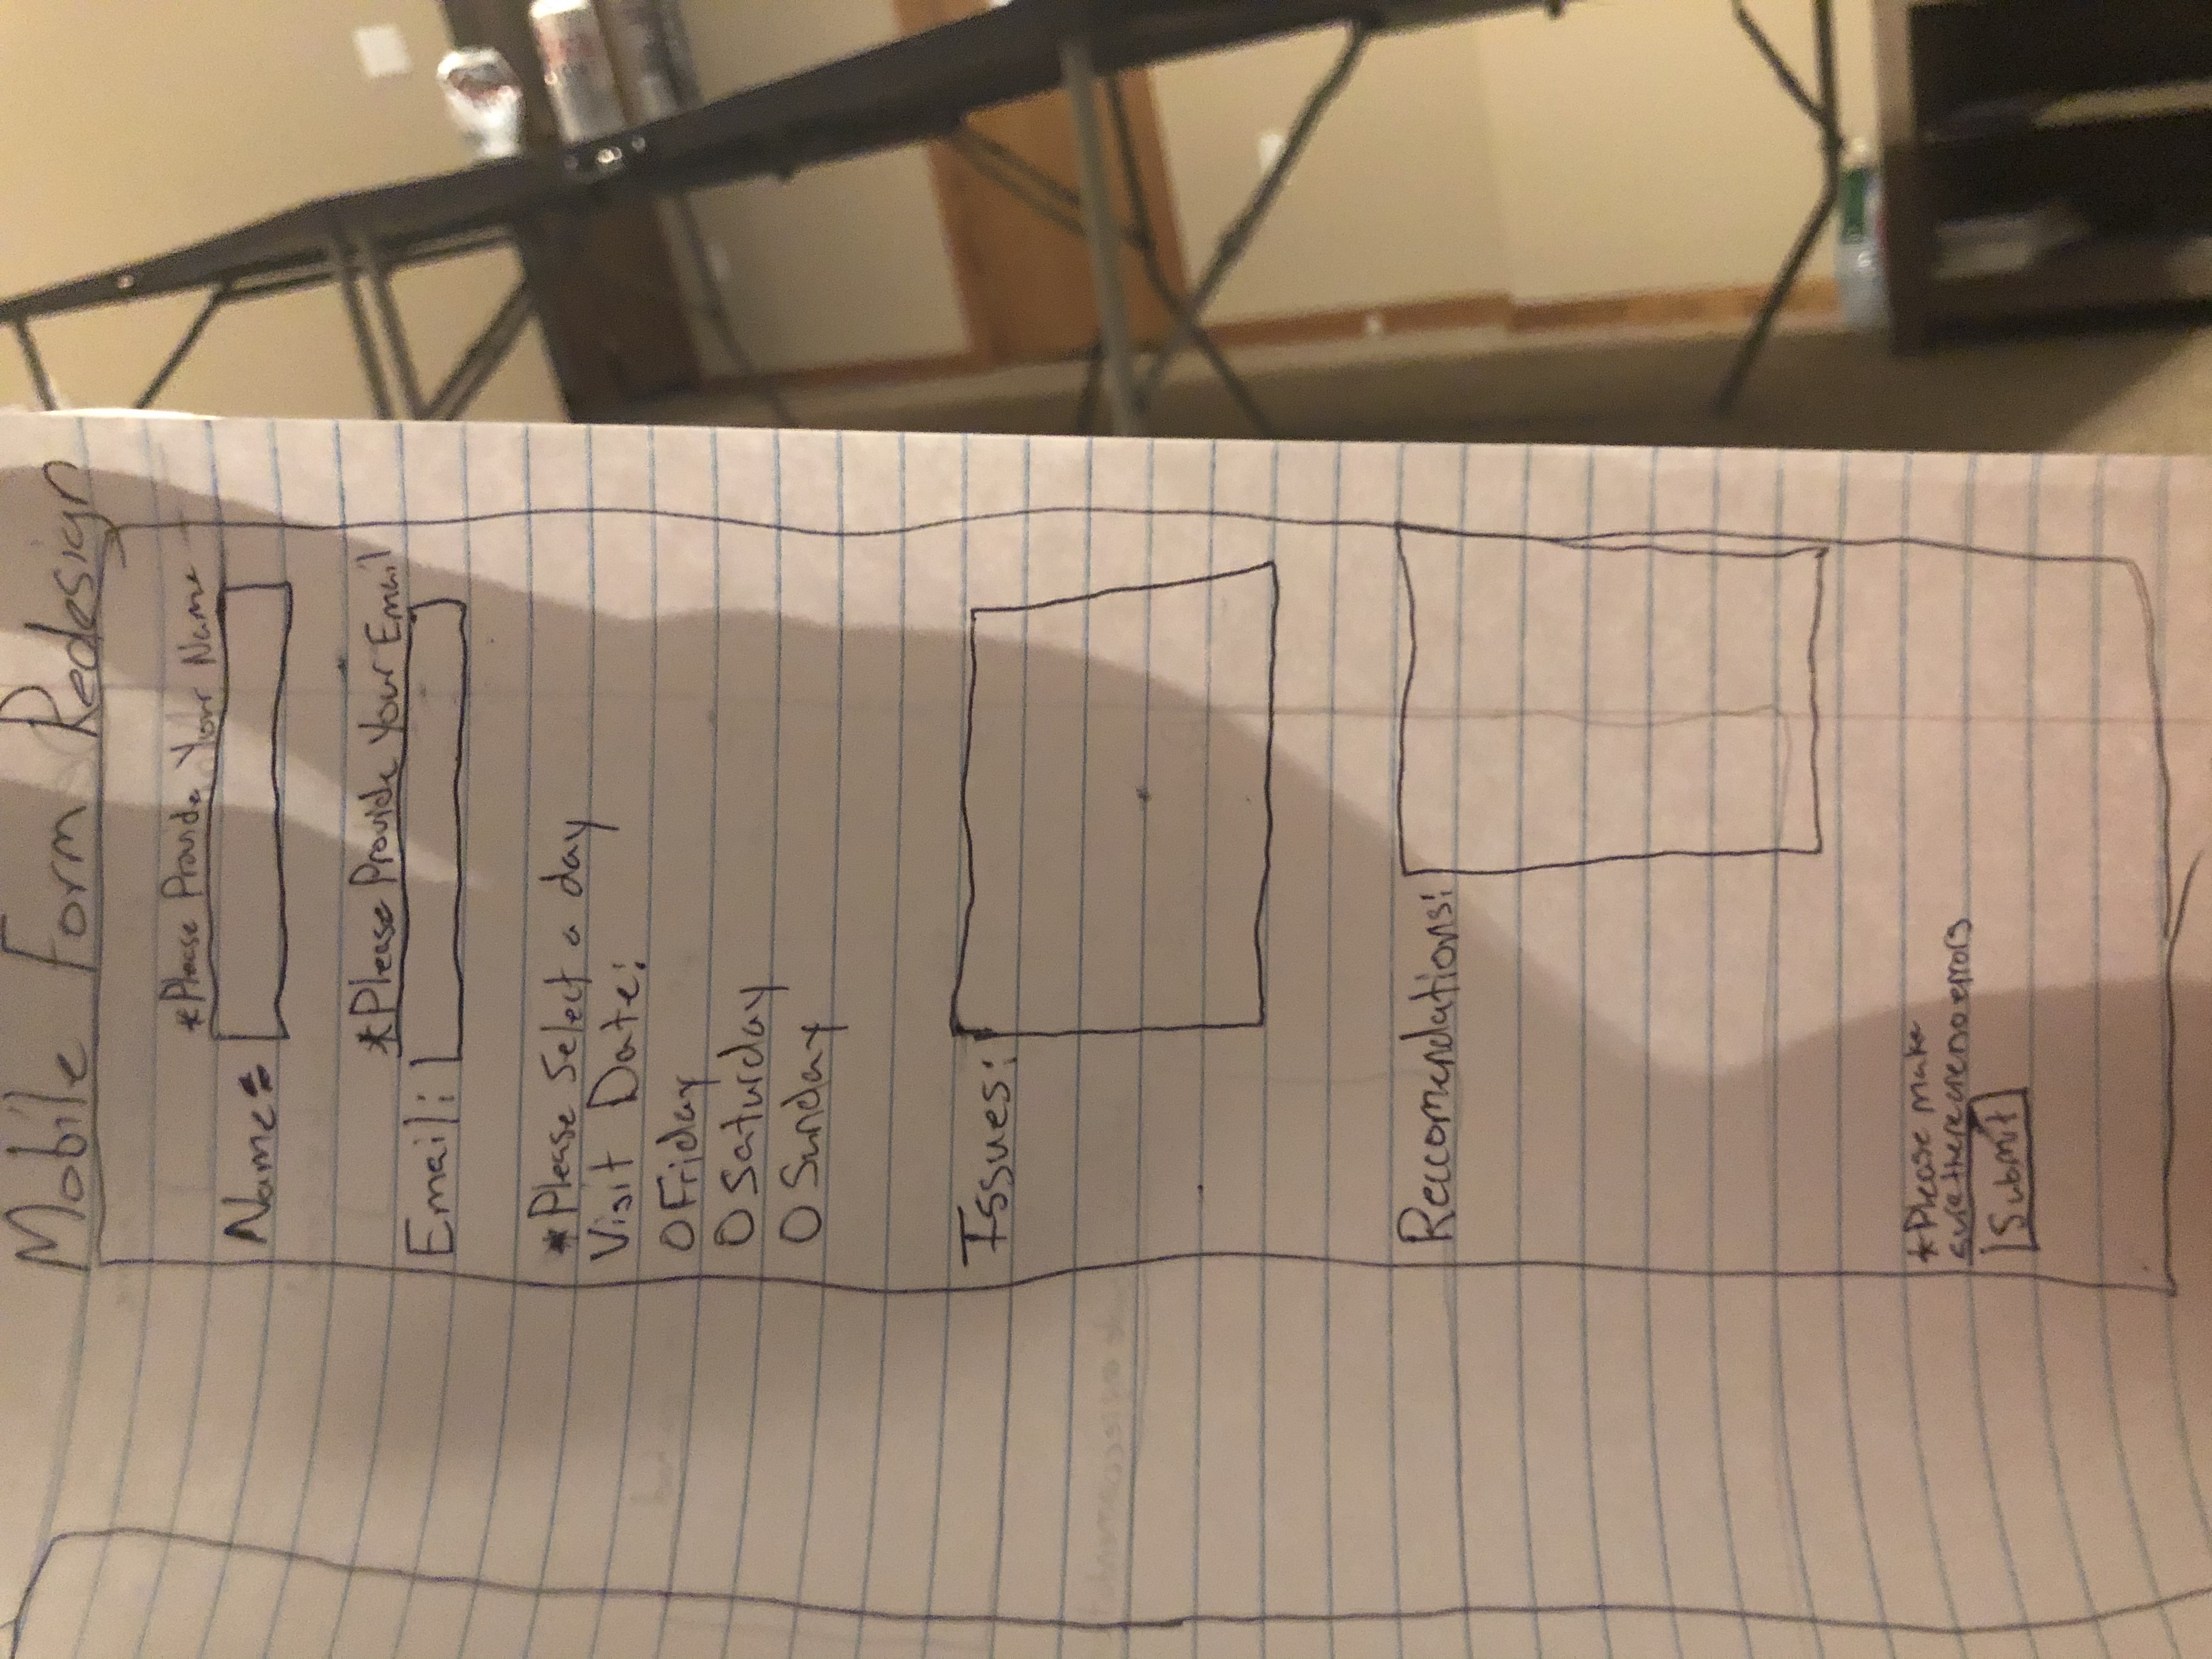 Mobile Form Redesign
*Please Provide Your Name
Name:
*Please Provide Your Email
Email:
*Please Select a day
Visit Date:
O Friday
O Saturday
O Sunday
Issues:
Reccomendations:
*Please make
sure there are no errors
Submit